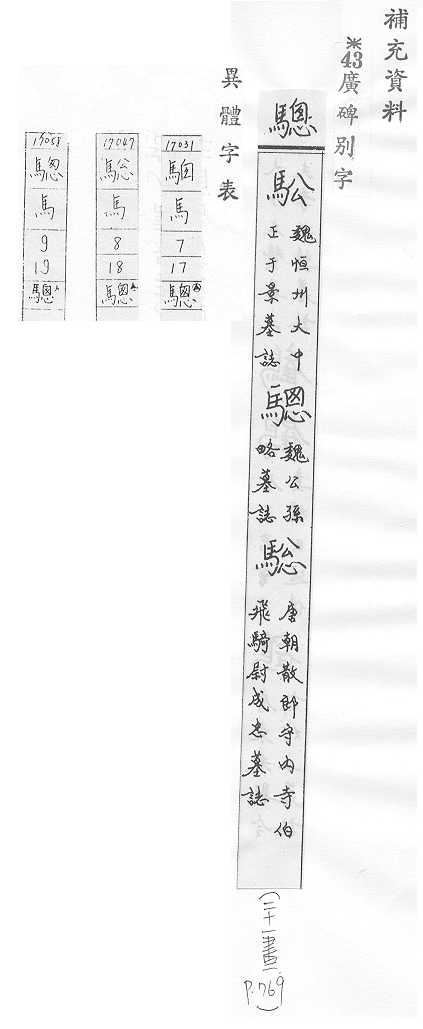 補充資料
※43廣碑別字
驄
䮵
魏恒州大中
正于景墓誌
驄
魏公孫
略墓誌
騘
唐朝散郎守內寺伯
飛騎尉成忠墓誌
(二十一畫 P.769)
異體字表
17031
馬
7
17
驄
17047
騘
馬
8
18
驄
17058
馬
9
19
驄